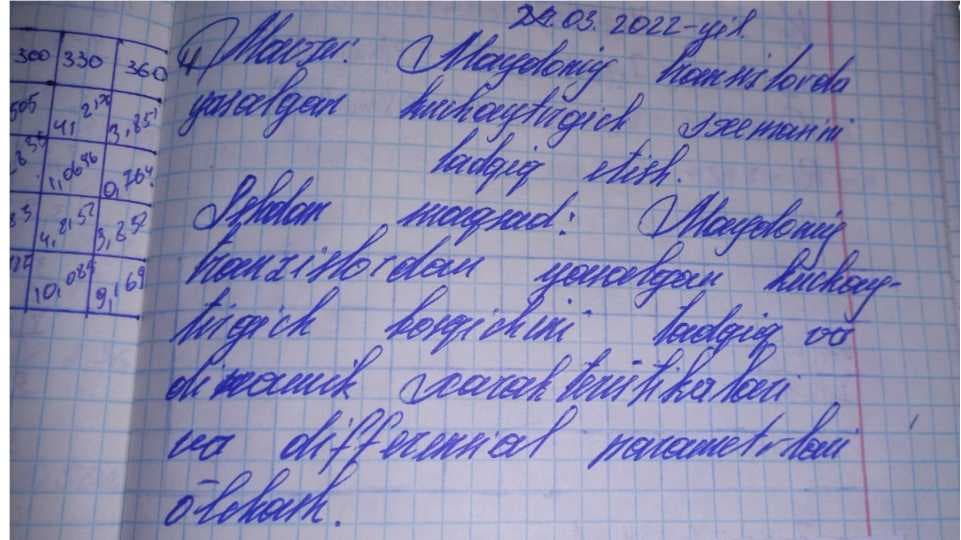 300 330 360
505 4,270 3,851
1,0696 0,764
4,252 3,852
10,085 9,169
24.03.2022-yil.
4) Mavzu: Maydoniy tranzistorda
yasalgan kuchaytirgich sxemasini
tadqiq etish.
Ishdan maqsad: Maydoniy
tranzistordan yasalgan kuchay-
tirgich bosqichini tadqiq va
dinamik xarakteristikalari
va differensial parametrlari
o'lchash.